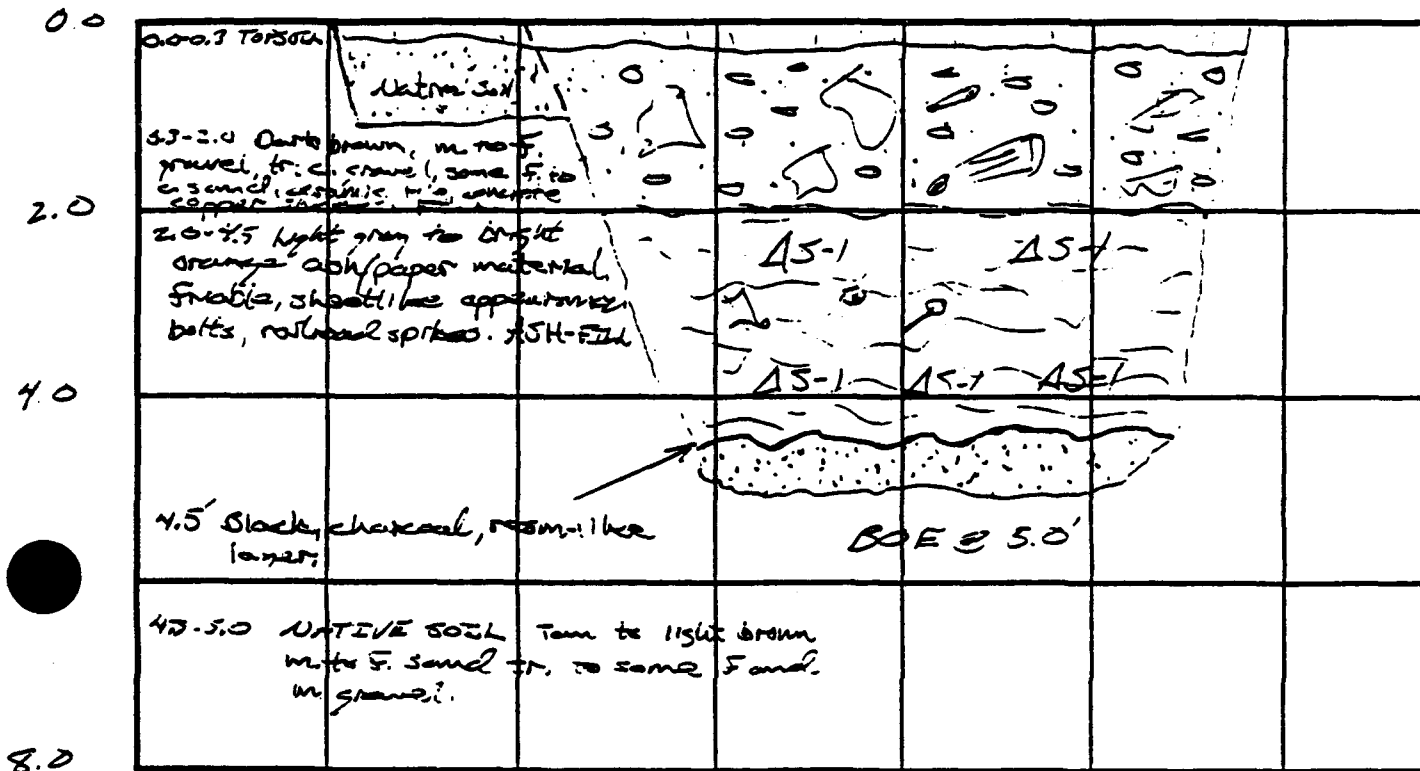 0.0
0.0-0.3 TOPSOIL
Native Soil
0.3-2.0 Dark brown, m. to f.
gravel, tr. c. gravel, some f. to
c. sand, ceramic, concrete
copper
2.0
2.0-4.5 Light gray to bright
orange ash/paper material,
friable, sheetlike appearance,
bolts, railroad spikes. ASH-FILL
ΔS-1 ΔS-1
ΔS-1 ΔS-1 ΔS-1
4.0
4.5' Black, charcoal, resin-like
layer,
BOE @ 5.0'
4.5-5.0 NATIVE SOIL Tan to light brown
m. to f. sand tr. to some f and
m gravel.
8.0